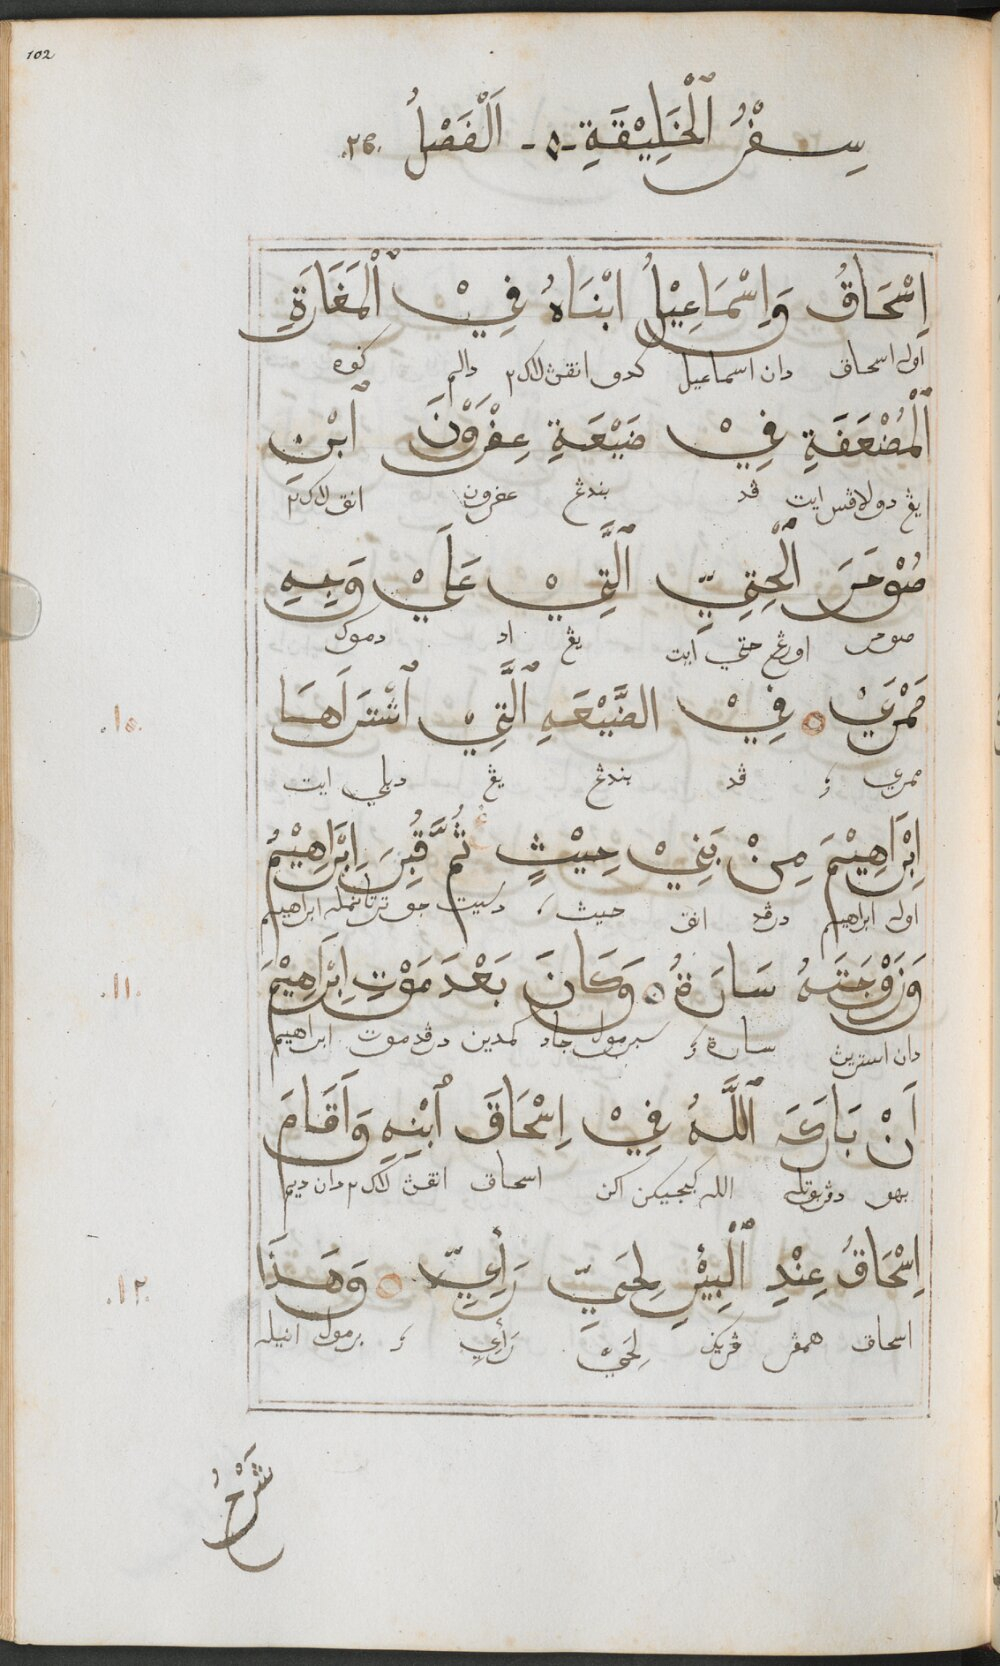 102
سِفْرُ ٱلْخَلِيْقَةِ - ٥ - اَلْفَصْلُ .٢٥.
اِسْحَاقُ وَاِسْمَاعِيْلُ ابْنَاهُ فِيْ ٱلْمَغَارَةِ
اوله اسحاق دان اسماعيل كدو انقڽ لاك٢ دالم كوه
ٱلْمُضْعَفَةِ فِيْ ضَيْعَةِ عِفْرَوْنَ ٱبْنِ
يڠ دولاڤس ايت ڤد بندڠ عفرون انق لاك٢
صُوْحَرَ ٱلْحِتِيِّ ٱلَّتِيْ عَلَيْ وَجِهِ
صوحر اورڠ حتي ايت يڠ اد دموک
مَمْرَيْ فِيْ الضَّيْعَهِ ٱلَّتِيْ ٱشْتَرَاهَا
.١٠.
ممري ڤد بندڠ يڠ دبلي ايت
اِبْرَاهِيْمَ مِنْ بَنِيْ حِيْثٍ ثُمَّ قُبِرَ اِبْرَاهِيْمُ
اوله ابراهيم درڤد انق حيث دسيت جو ترتانمله ابراهيم
وَزَوْجَتَهُ سَارَةُ وَكَانَ بَعْدَ مَوْتِ اِبْرَاهِيْمَ
.١١.
دان استريڽ سارة سبرمول جاد كمدين درڤد موت ابراهيم
اَنْ بَارَكَ ٱللَّهُ فِيْ اِسْحَاقَ ٱبْنِهِ وَاَقَامَ
بهو دڤربوتله الله كبجيكن اكن اسحاق انقڽ لاك٢ دان ديم
اِسْحَاقُ عِنْدِ ٱلْبِيْرِ لِحَيِّ رَأْيِيِّ وَهَذَا
.١٢.
اسحاق همڤر ڤريگي لِحَيْ رَأْيِي برمول اينله
شَرْحُ